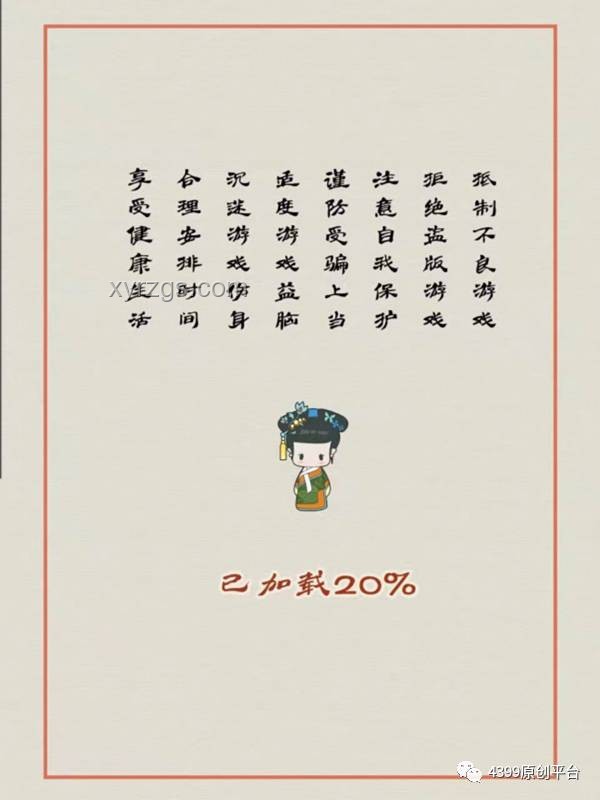 抵制不良游戏
拒绝盗版游戏
注意自我保护
谨防受骗上当
适度游戏益脑
沉迷游戏伤身
合理安排时间
享受健康生活
xyrzgs.com
已加载20%
4399原创平台